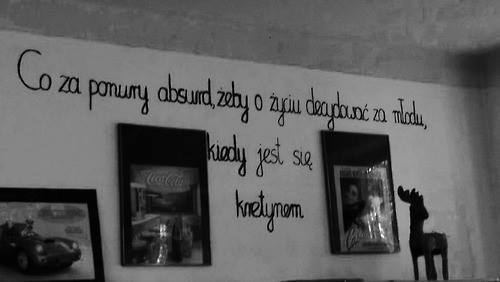 Co za ponury absurd, żeby o życiu decydować za młodu,
kiedy jest się
kretynem
Coca-Cola